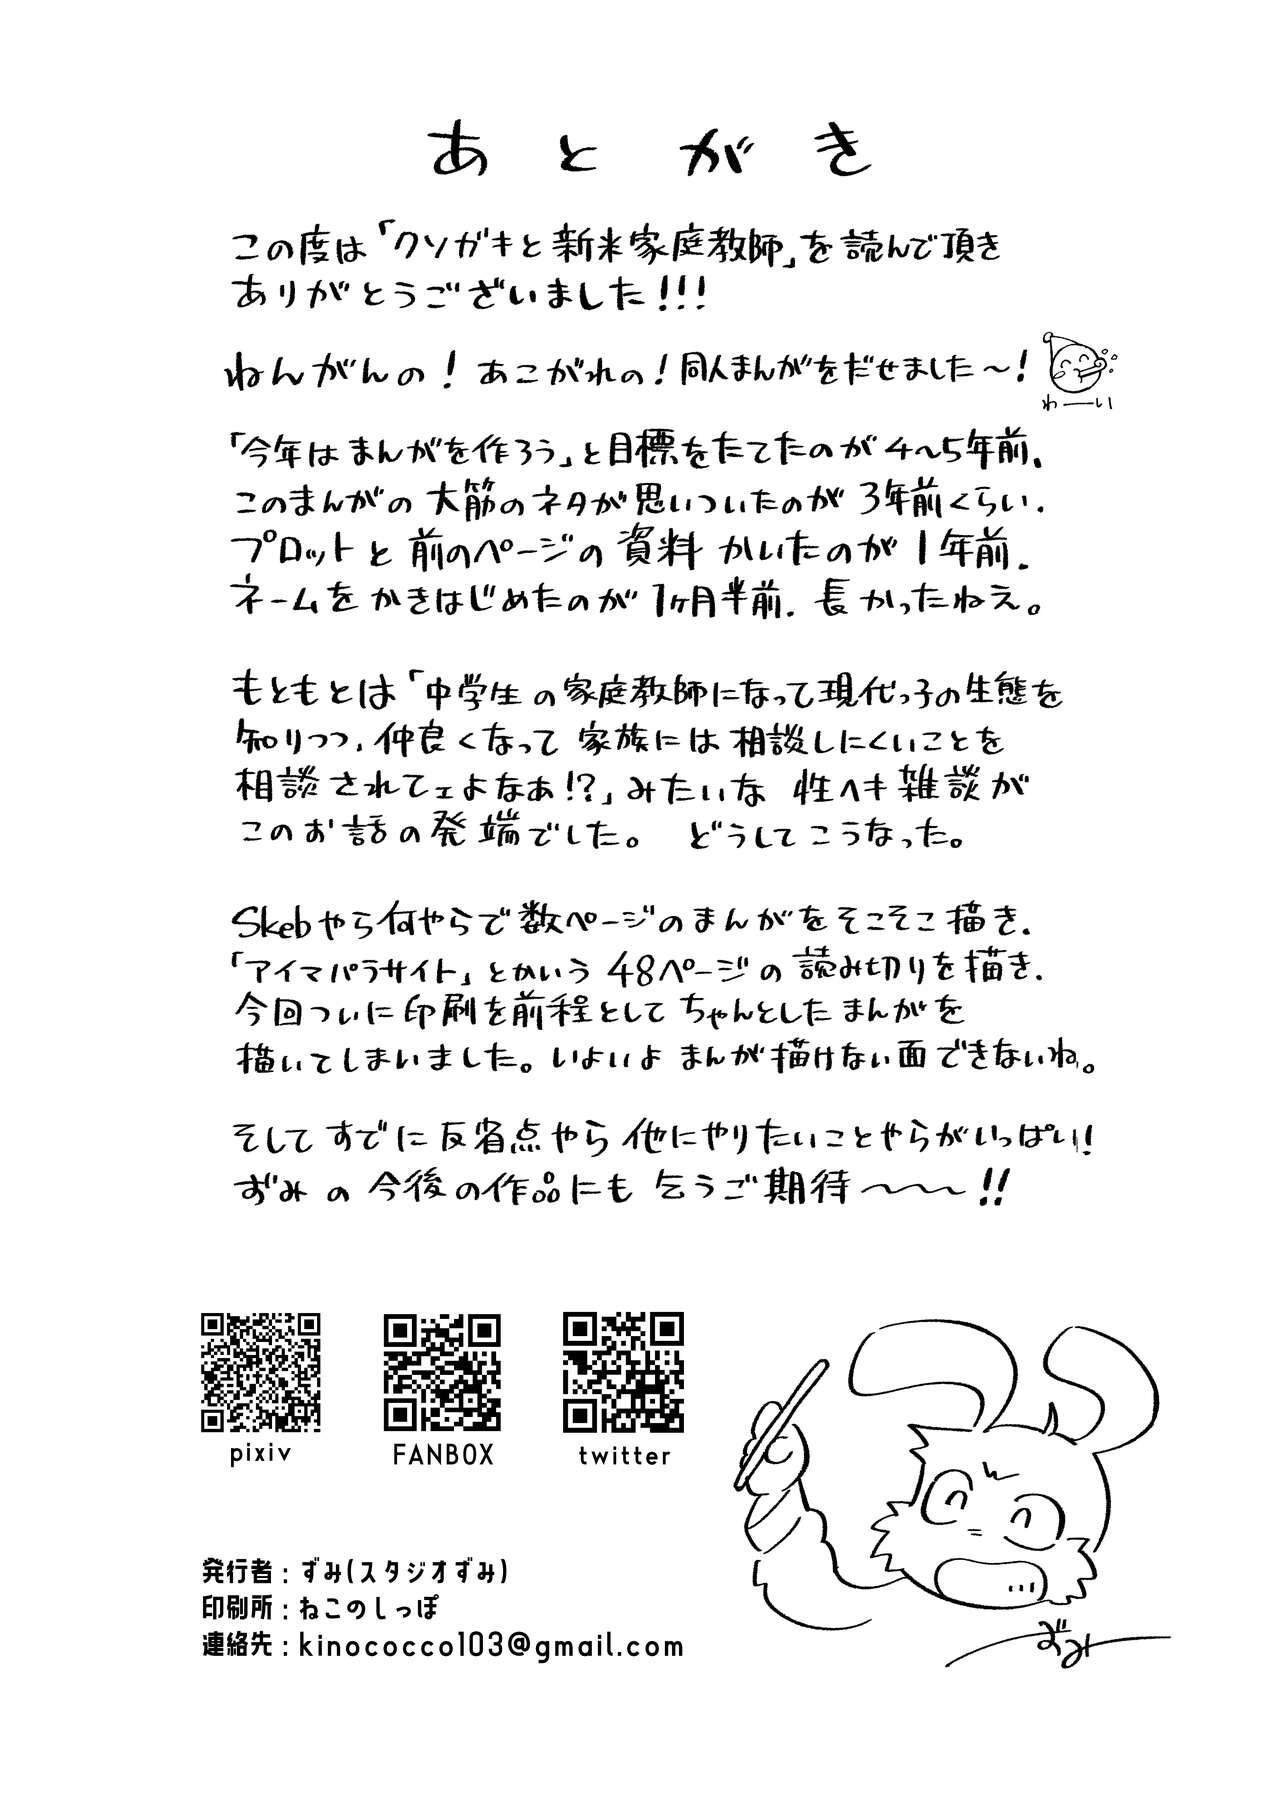 あとがき
この度は「クソガキと新米家庭教師」を読んで頂き
ありがとうございました!!!
ねんがんの!あこがれの!同人まんがをだせました〜!
わーい
「今年はまんがを作ろう」と目標をたてたのが4〜5年前.
このまんがの大筋のネタが思いついたのが3年前くらい.
プロットと前のページの資料かいたのが1年前.
ネームをかきはじめたのが1ヶ月半前.長かったねえ。
もともとは「中学生の家庭教師になって現代っ子の生態を
知りつつ、仲良くなって家族には相談しにくいことを
相談されてェよなあ!?」みたいな性ヘキ雑談が
このお話の発端でした。どうしてこうなった。
Skebやら何やらで数ページのまんがをそこそこ描き.
「アイマパラサイト」とかいう48ページの読み切りを描き.
今回ついに印刷を前程としてちゃんとしたまんがを
描いてしまいました。いよいよまんが描けない面できないね。
そしてすでに反省点やら他にやりたいことやらがいっぱい!
ずみの今後の作品にも乞うご期待〜〜〜!!
pixiv
FANBOX
twitter
発行者:ずみ(スタジオずみ)
印刷所:ねこのしっぽ
連絡先:kinococco103@gmail.com
ずみ